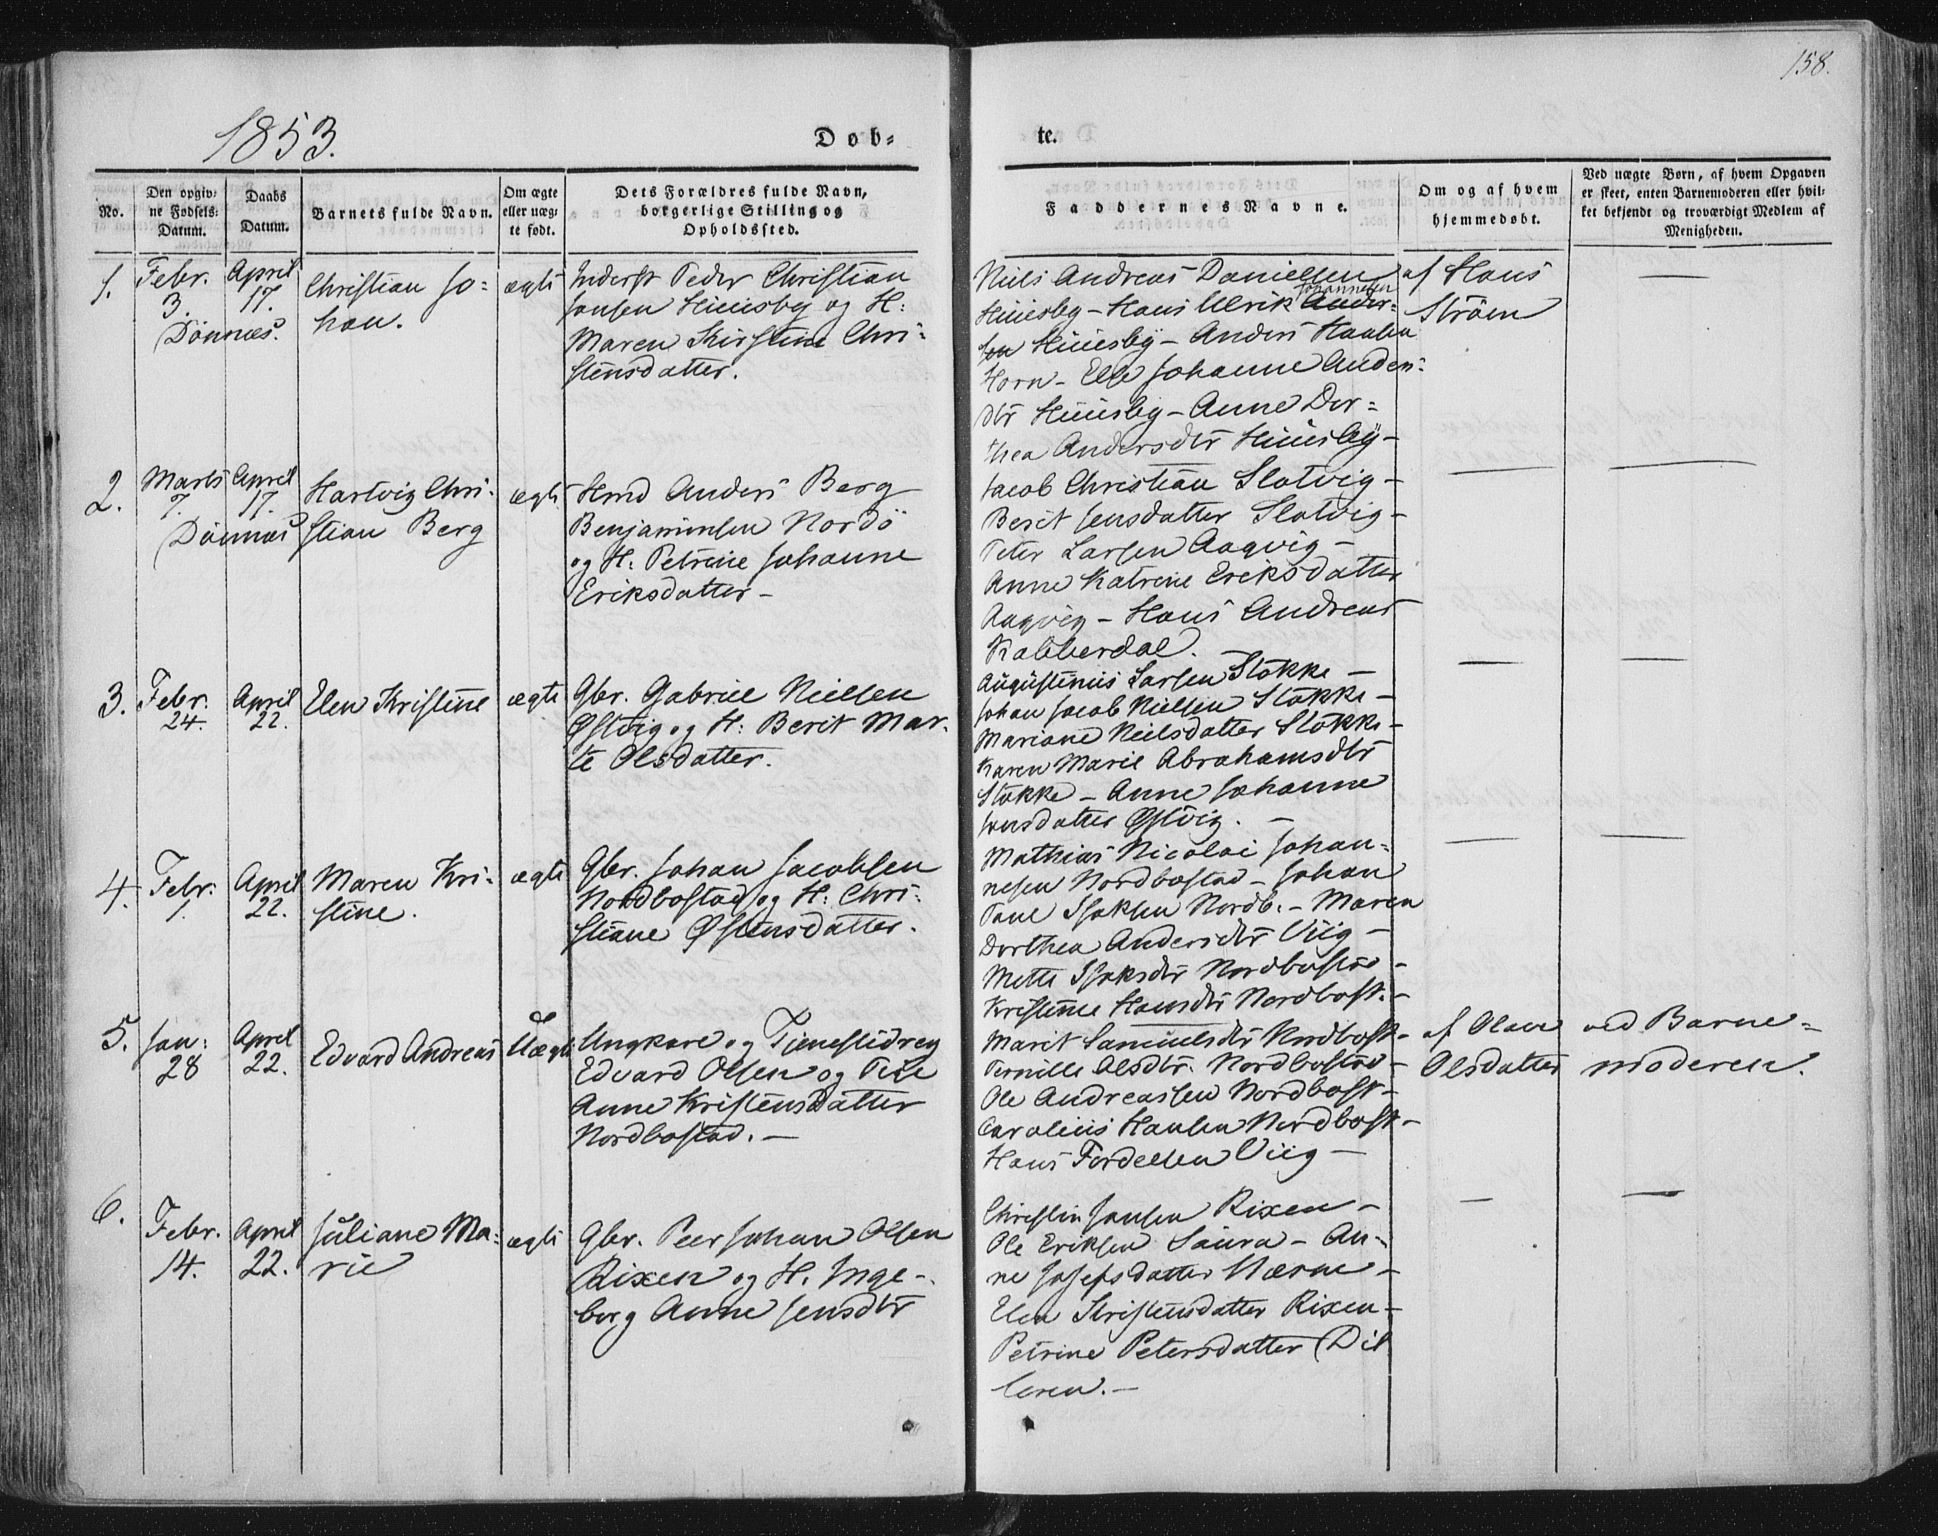 158.
1853.
Døb-
te.
No.
Den opgiv-
ne Fødsels-
Datum.
Daabs
Datum.
Barnets fulde Navn.
Om ægte
eller uæg-
te født.
Dets Forældres fulde Navn,
borgerlige Stilling og
Opholdssted.
Faddernes Navne.
Om og af hvem
hjemmedøbt.
Ved uægte Børn, af hvem Opgaven
er skeet, enten Barnemoderen eller hvil-
ket bekjendt og troværdigt Medlem af
Menigheden.
1.
Febr.
3.
Dönnæs.
April
17.
Christian Jo-
han.
ægte
Inderst Peder Christian
Jansen Huusby og H:
Maren Kirstine Chri-
stensdatter.
Niels Andreas Danielsen
Johannesen
Huusby - Hans Ulrik Ander-
sen Huusby - Anders
Horn - Else Johanne Anders-
dtr Huusby - Anne Dor-
thea Andersdtr Huusby -
af Hans
Ström
—
2.
Marts
7.
Dönnæs
April
17.
Hartvig Chri-
stian Berg
ægte
Hmd Anders Berg
Benjaminsen Nordö
og H: Petrine Johanne
Eriksdatter -
Jacob Christian Slotvig -
Berit Jensdatter Slotvig -
Peter Larsen Aaqvig -
Anne Katrine Eriksdatter
Aaqvig - Hans Andreas
Kobberdal.
—
—
3.
Febr.
24.
April
22.
Elen Kristine
ægte
Gbr. Gabriel Nielsen
Østvig og H: Berit Mar-
te Olsdatter.
Augustinus Larsen Stokke -
Johan Jacob Nielsen Stokke -
Mariane Nielsdatter Stokke -
Karen Marie Abrahamsdtr
Stokke - Anne Johanne
Jensdatter Østvig. -
—
—
4.
Febr:
1.
April
22.
Maren Kri-
stine.
ægte
Gbr. Johan Jacobsen
Nordbostad og H: Chri-
stiane Østensdatter.
Mathias Nicolai Johan-
nesen Nordbostad - Johan
Paul Isaksen Nordb. - Maren
Dorthea Andersdtr Viig -
Mette Isaksdtr Nordbostad -
Kristine Hansdtr Nordbost. -
—
—
5.
Jan:
28
April
22.
Edvard Andreas
Uægte
Ungkarl og Tjenestedreng
Edvard Olsen og Pige
Anne Kristensdatter
Nordbostad. —
Marit Samuelsdtr Nordbost -
Pernille Olsdtr. Nordbostad -
Ole Andreassen Nordbost -
Carolius Hansen Nordbost -
Hans Fordelsen Viig -
af Olava
Olsdatter
ved Barne-
moderen.
6.
Febr.
14.
April
22.
Juliane Ma-
rie
ægte
Gbr. Peer Johan Olsen
Rixen og H. Inge-
borg Anne Jensdtr
Christin Jansen Rixen -
Ole Eriksen Saura - An-
ne Josefsdatter Nærne -
Elen Kristensdatter Rixen -
Petrine Petersdatter Dil
leren. -
—
—